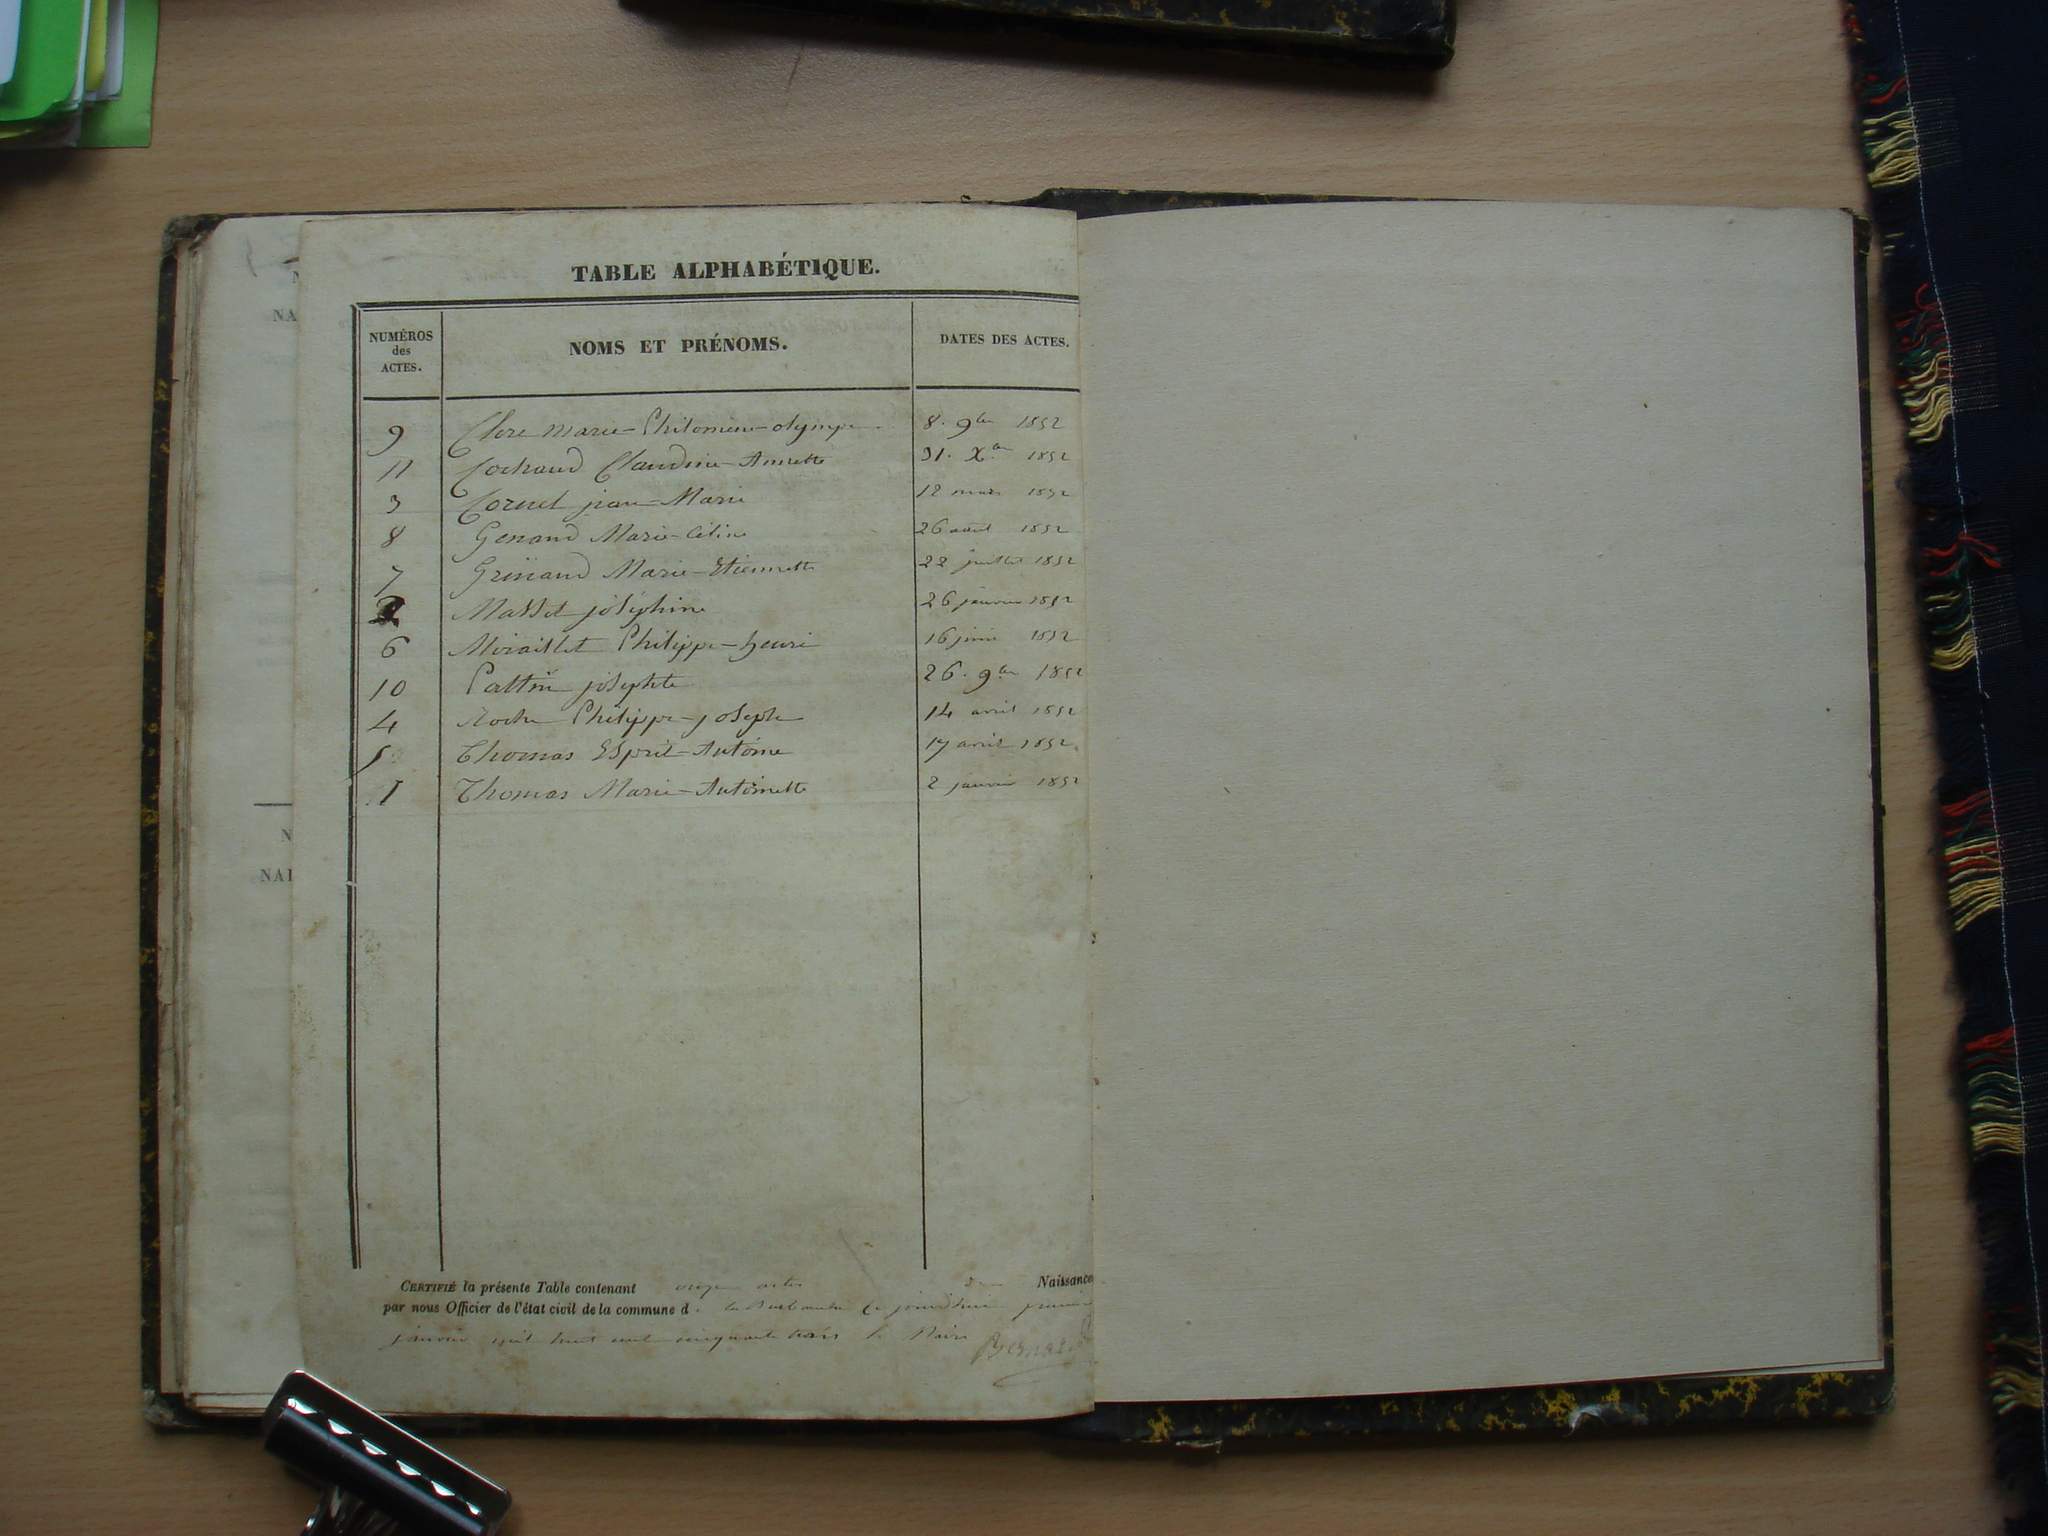 TABLE ALPHABÉTIQUE.
NUMÉROS des ACTES. NOMS ET PRÉNOMS. DATES DES ACTES.
9 Clere Marie-Philomène-olympe 8. 9bre 1852
11 Cochaud Claudine-Annette 31. Xbre 1852
3 Cornet jean-Marie 12 mars 1852
8 Genand Marie-Céline 26 août 1852
7 Marie-Etiennette 22 juillet 1852
2 Masset joséphine 26 janvier 1852
6 Miraillet Philippe-henri 16 juin 1852
10 josephte 26. 9bre 1852
4 Roche Philippe-joseph 14 avril 1852
5 Thomas Esprit-Antoine 17 avril 1852
1 Thomas Marie-Antoinette 2 janvier 1852
CERTIFIÉ la présente Table contenant onze actes de Naissance
par nous Officier de l'état civil de la commune d ce jourd'hui premier
janvier mil huit cent cinquante trois le Maire
NA
NAI